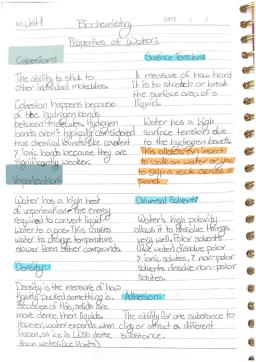 NO. Unit 1
Biochemistry
DATE / /
Properties of Water:
Cohesion:
The ability to stick to
other individual molecules.
Cohesion happens because
of the hydrogen bonds
between molecules. Hydrogen
bonds aren't typically considered
true chemical bonds like covalent
& ionic bonds because they are
significantly weaker.
Vaporization:
Water has a high heat
of vaporization. The energy
required to convert liquid
water to a gas. This causes
water to change temperature
slower than other compounds.
Density:
Density is the measure of how
tightly packed something is.
Because of this, solids are
more dense than liquids.
However, water expands when
frozen, so ice is LESS dense
than water. (ice floats)
Surface Tension:
A measure of how hard
it is to stretch or break
the surface area of a
liquid.
Water has a high
surface tension due
to the hydrogen bonds.
This allows an insect
to walk on water or you
to skip a rock across a
pond.
Universal Solvent:
Water's high polarity
allows it to dissolve things
very well. Polar solvents
(like water) dissolve polar
& ionic solutes, & non-polar
solvents dissolve non-polar
solutes.
Adhesion:
The ability for one substance to
cling or attract a different
substance.